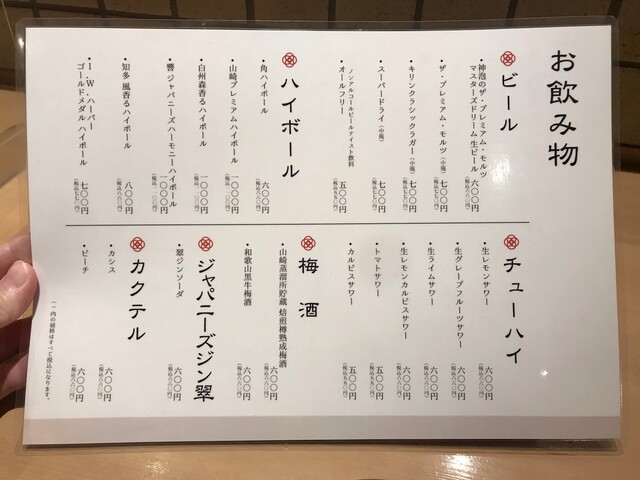 お飲み物
ビール
・神泡のザ・プレミアム・モルツ
マスターズドリーム 生ビール 六〇〇円
(税込六六〇円)
・ザ・プレミアム・モルツ(中瓶) 七〇〇円
(税込七七〇円)
・キリンクラシックラガー(中瓶) 七〇〇円
(税込七七〇円)
・スーパードライ(中瓶) 七〇〇円
(税込七七〇円)
ノンアルコールビールテイスト飲料
・オールフリー 五〇〇円
(税込五五〇円)
ハイボール
・角ハイボール 六〇〇円
(税込六六〇円)
・山崎プレミアムハイボール 一〇〇〇円
(税込一一〇〇円)
・白州森香るハイボール 一〇〇〇円
(税込一一〇〇円)
・響 ジャパニーズハーモニーハイボール 一〇〇〇円
(税込一一〇〇円)
・知多 風香るハイボール 八〇〇円
(税込八八〇円)
・I.W.ハーパー
ゴールドメダル ハイボール 七〇〇円
(税込七七〇円)
チューハイ
・生レモンサワー 六〇〇円
(税込六六〇円)
・生グレープフルーツサワー 六〇〇円
(税込六六〇円)
・生ライムサワー 六〇〇円
(税込六六〇円)
・生レモンカルピスサワー 六〇〇円
(税込六六〇円)
・トマトサワー 五〇〇円
(税込五五〇円)
・カルピスサワー 五〇〇円
(税込五五〇円)
梅酒
・山崎蒸溜所貯蔵 焙煎樽熟成梅酒 六〇〇円
(税込六六〇円)
・和歌山黒牛梅酒 六〇〇円
(税込六六〇円)
ジャパニーズジン翠
・翠ジンソーダ 六〇〇円
(税込六六〇円)
カクテル
・カシス 六〇〇円
(税込六六〇円)
・ピーチ 六〇〇円
(税込六六〇円)
( )内の価格はすべて税込になります。